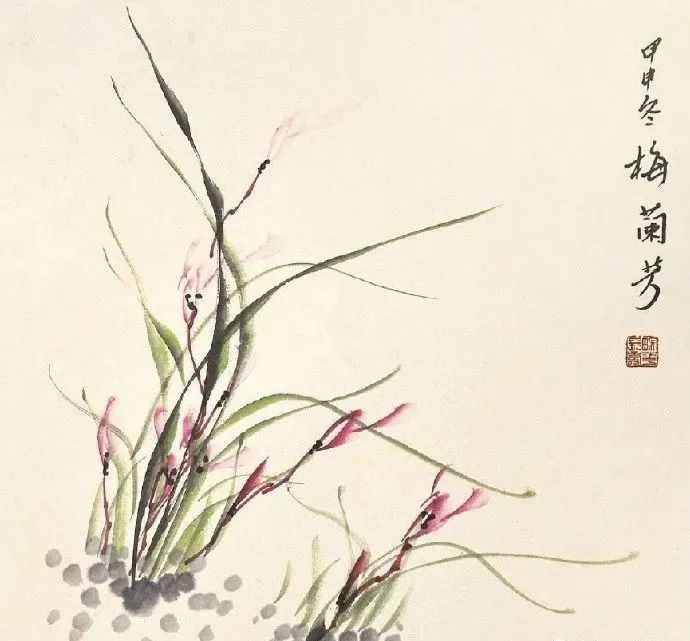 甲申冬梅蘭芳